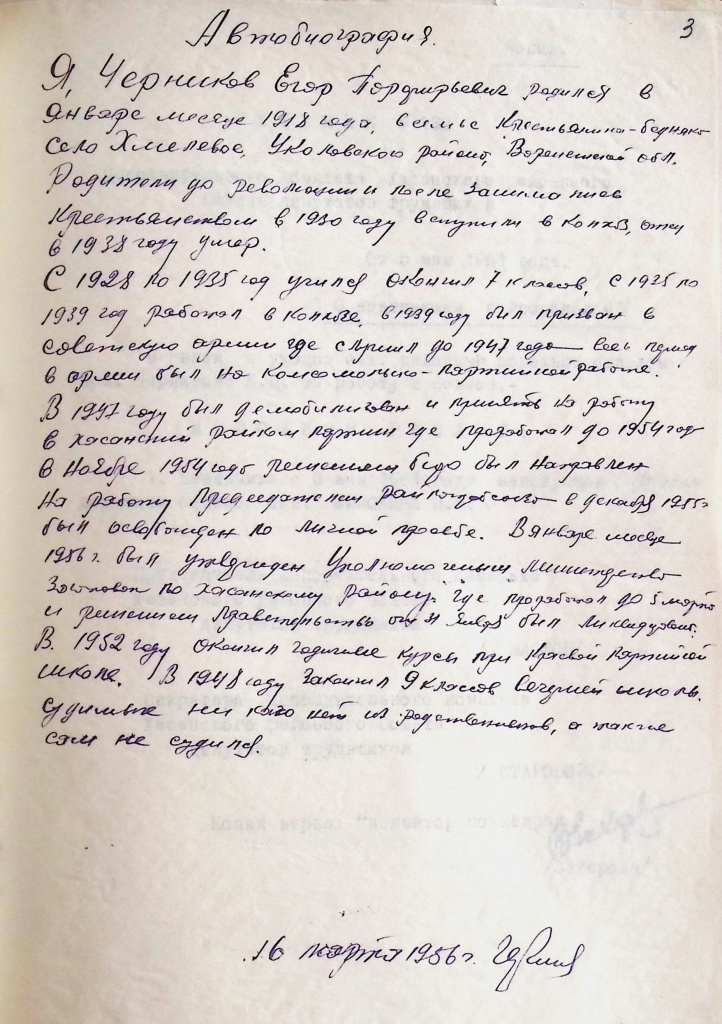 3
Автобиография.
Я, Черников Егор Порфирьевич родился в
январе месяце 1918 года, в семье Крестьянина-бедняка
село Хмелевое, Уколовского района, Воронежской обл.
Родители до революции и после занимались
Крестьянством в 1930 году вступили в колхоз, отец
в 1938 году умер.
С 1928 по 1935 год учился окончил 7 классов, с 1935 по
1939 год работал в колхозе, в 1939 году был призван в
советскую армию где служил до 1947 года весь период
в армии был на Комсомольско-партийной работе.
В 1947 году был демобилизован и принять на работу
в Хасанский райком партии где проработал до 1954 года
в ноябре 1954 года решением бюро был направлен
на работу Председателем в декабре 1955 г
был освобожден по личной просьбе. В январе месяце
1956 г. был утвержден Уполномоченным Министерство
Заготовок по Хасанскому району, где проработал до 5 марта
и решением правительства от 31 января был ликвидирован.
В. 1952 году окончил годичные курсы при Краевой партийной
школе. В 1948 году закончил 9 классов вечерней школы.
Судимых ни кого нет из родственников, а также
сам не судился.
16 марта 1956 г.